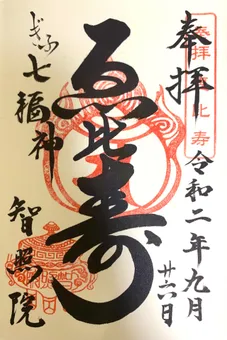 奉拝
奉拝 恵比寿
令和二年九月
廿六日
ゑ比寿
ぎふ七福神
智照院